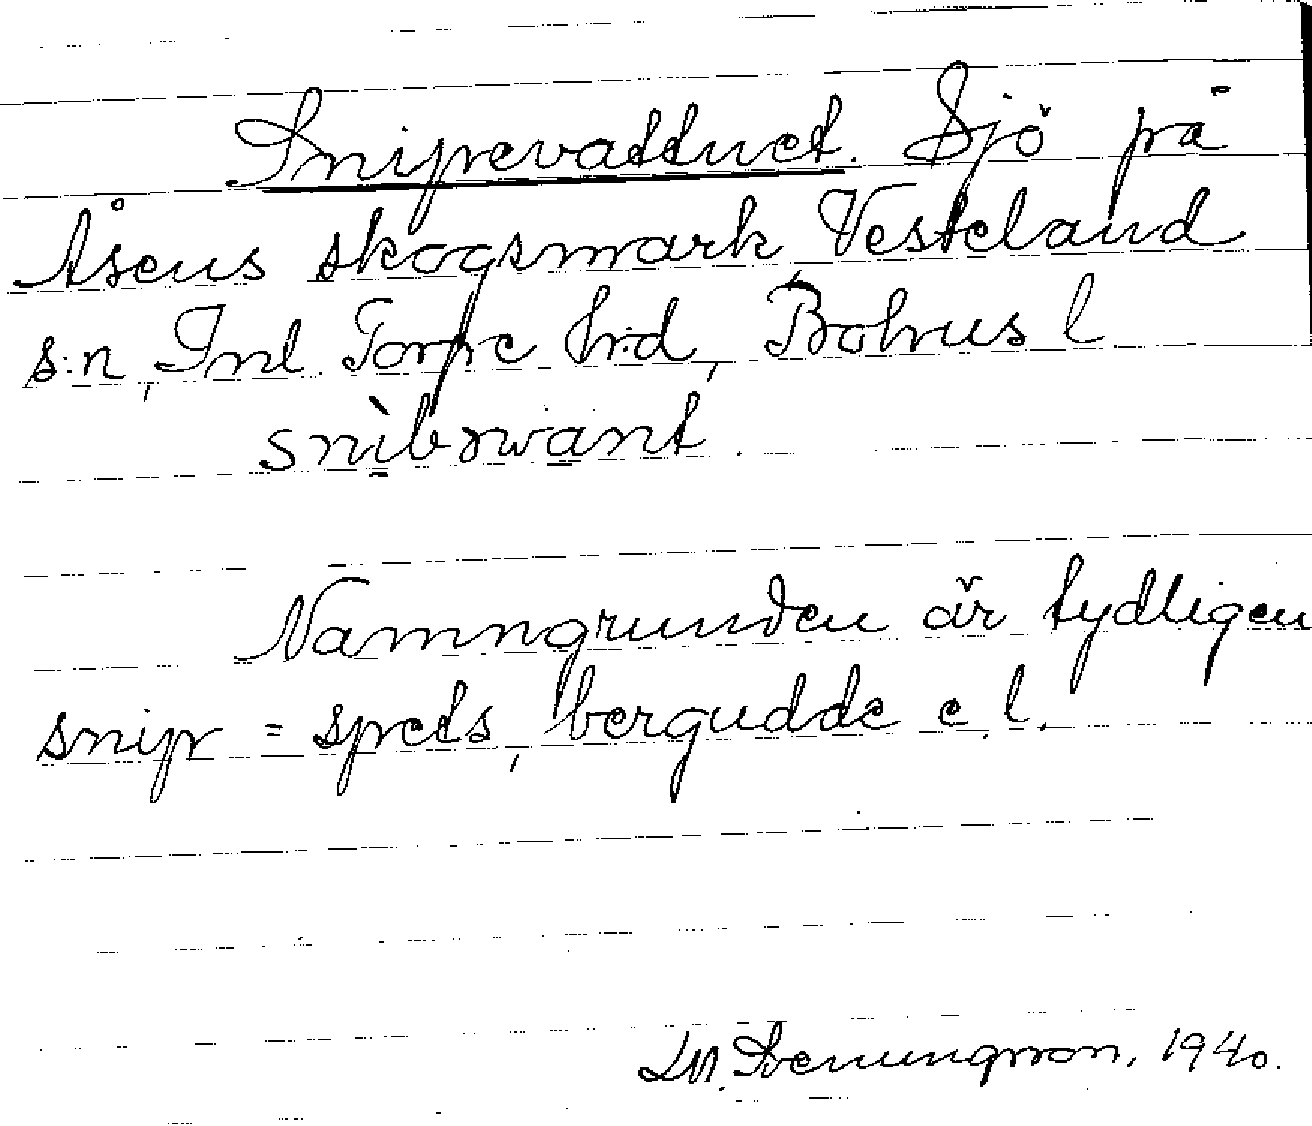 Snipevattnet. Sjö på
Åsens skogsmark, Vesteland
s:n, Inl. Torpe hrd, Bohus l
Namngrunden är tydligen
snip = spets, bergudde e. l.
1940.